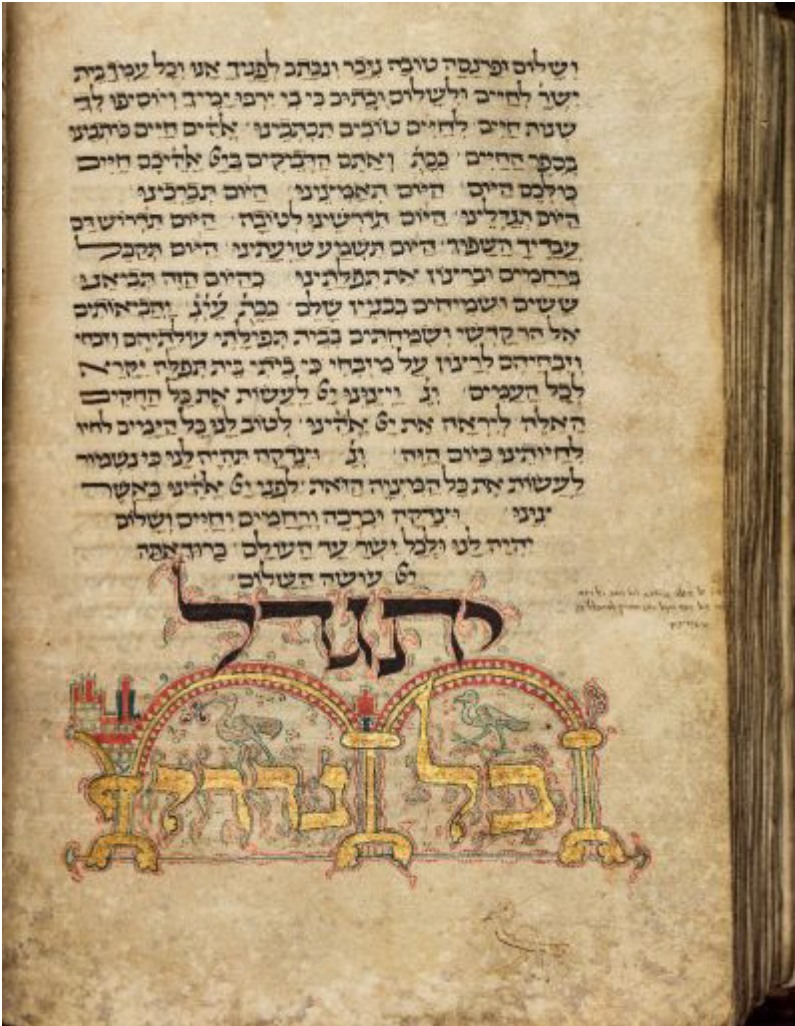 ושלום ופרנסה טובה ניכר ונכתב לפניך אנו וכל עמך בית
ישר לחיים ולשלום וכתוב כי בי ירבו ימיך ויוסיפו לך
שנות חיים לחיים טובים תכתבינו אלהים חיים כותבינו
בספר החיים ככת ואתם הדביקים ביי אלהיכם חיים
כולכם היום היום תאמצינו היום תברכינו
היום תגדלינו היום תדרשינו לטובה היום תדרוש דם
עבדיך השפוך היום תשמע שועתינו היום תקבל
ברחמים וברצון את תפלתינו כהיום הזה תביאנו
ששים ושמיחים בבניין שלם ככת והביאותים
אל הר קדשי ושמיחתים בבית תפילתי עולתיהם וזבחי
וזבחיהם לרצון על מיזבחי כי ביתי בית תפלה יקרא
לכל העמים ויצוינו יי לעשות את כל החקים
האלה ליראה את יי אלהינו לטוב לנו כל הימים לחיו
לחיותינו כיום הזה וצדקה תהיה לנו כי נשמור
לעשות את כל המיצוה הזאת לפני יי אלהינו כאשר
ציונו וצדקה וברכה ורחמים וחיים ושלום
יהיה לנו ולכל ישר עד העולם ברוך אתה
יי עושה השלום
יתגדל
כל נדרי